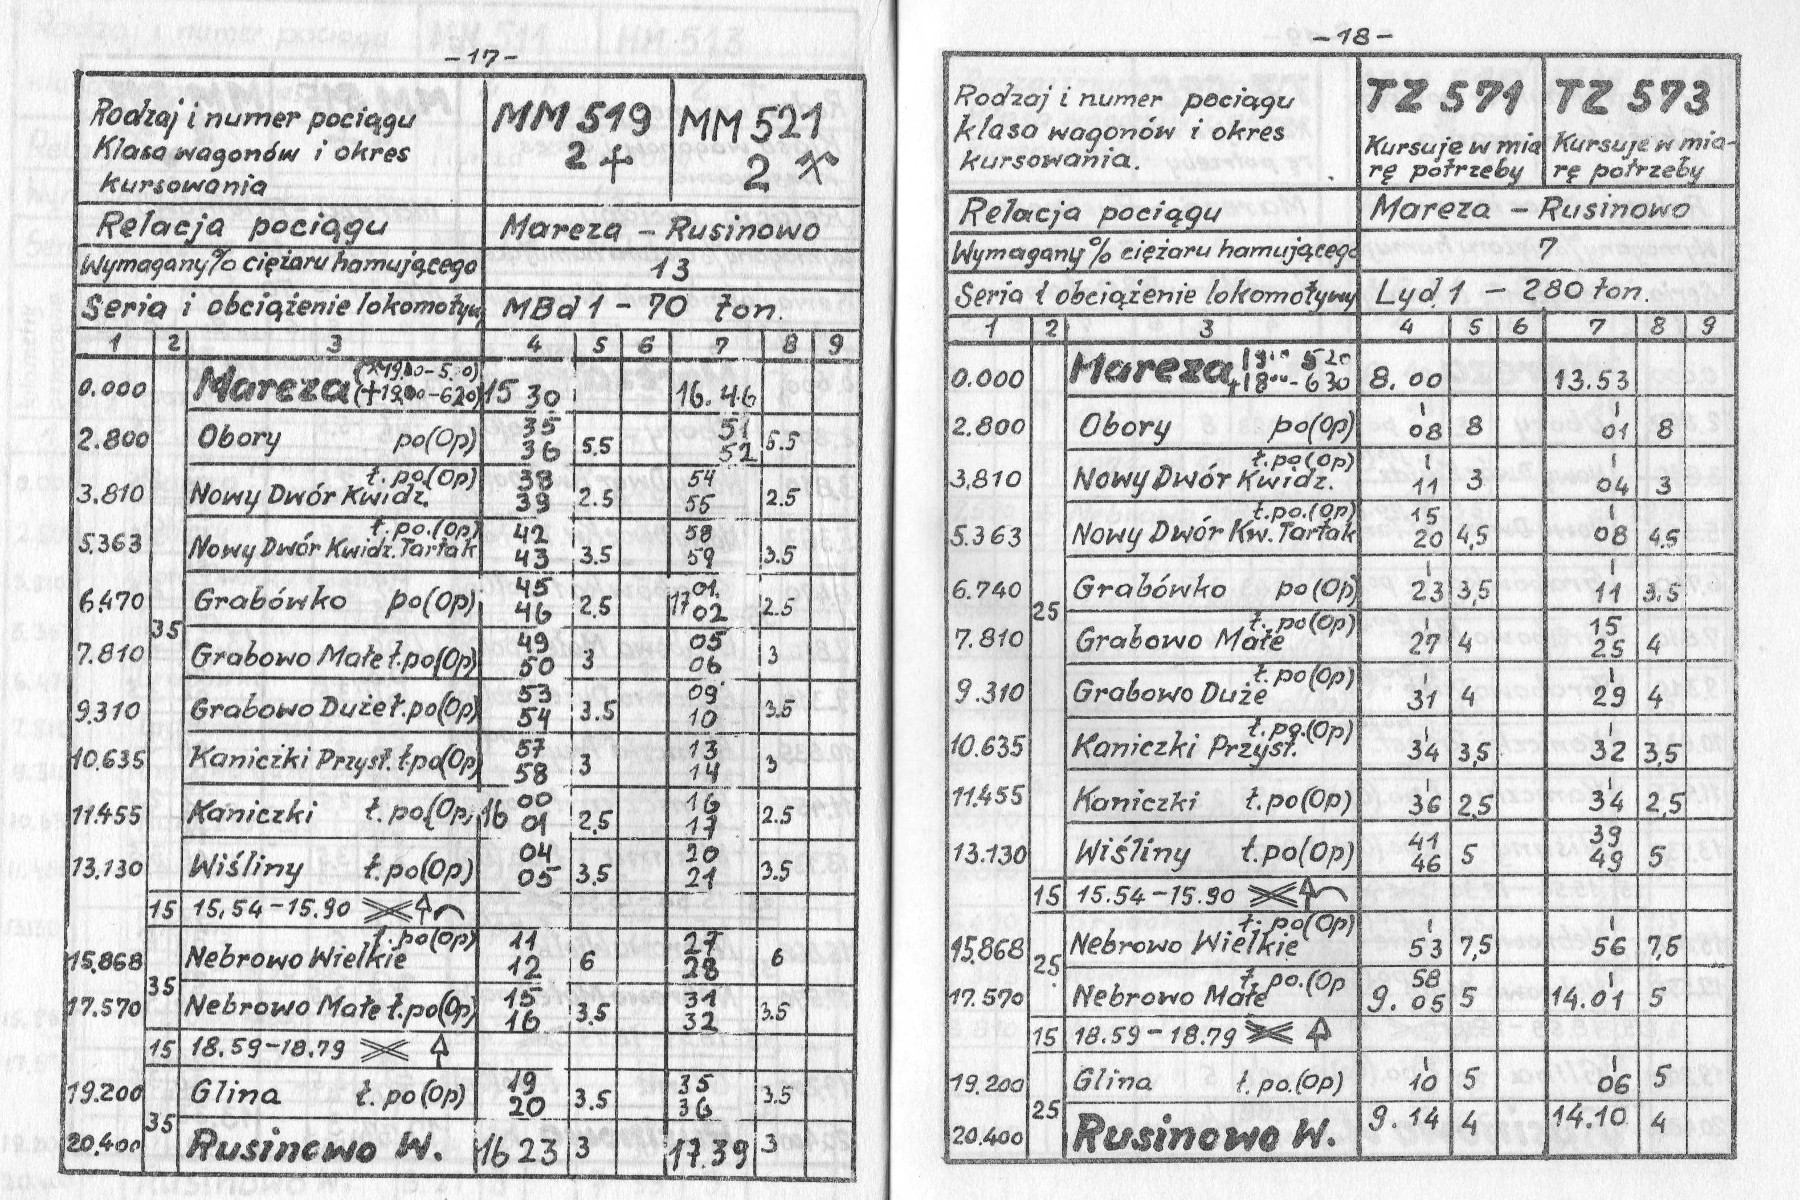 -17-
Rodzaj i numer pociągu
Klasa wagonów i okres
kursowania
MM 519
2 +
MM 521
2 ⚒
Relacja pociągu Mareza - Rusinowo
Wymagany % ciężaru hamującego 13
Seria i obciążenie lokomotywy MBd 1 - 70 ton.
1 2 3 4 5 6 7 8 9
0.000 Mareza 15 30 16.46
35 51
2.800 Obory po(Op) 36 5.5 52 5.5
ł.po(Op) 38 54
3.810 Nowy Dwór Kwidz. 39 2.5 55 2.5
ł.po.(Op) 42 58
5.363 Nowy Dwór Kwidz. Tartak 43 3.5 59 3.5
45 01.
6.470 Grabówko po(Op) 46 2.5 17 02 2.5
35
49 05
7.810 Grabowo Małe ł.po(Op) 50 3 06 3
53 09
9.310 Grabowo Duże ł.po(Op) 54 3.5 10 3.5
57 13
10.635 Kaniczki Przyst. ł.po(Op) 58 3 14 3
00 16
11.455 Kaniczki ł.po(Op) 16 01 2,5 17 2.5
04 20
13.130 Wiśliny ł.po(Op) 05 3.5 21 3.5
15 15,54-15.90
ł.po(Op) 11 27
15.868 Nebrowo Wielkie 12 6 28 6
35
15 31
17.570 Nebrowo Małe ł.po(Op) 16 3.5 32 3.5
15 18.59-18.79
19 35
19.200 Glina ł.po(Op) 20 3.5 36 3.5
35
20.400 Rusinowo W. 16 23 3 17.39 3
-18-
Rodzaj i numer pociągu
klasa wagonów i okres
kursowania.
TZ 571
Kursuje w mia
rę potrzeby
TZ 573
Kursuje w mia-
rę potrzeby
Relacja pociągu Mareza - Rusinowo
Wymagany % ciężaru hamującego 7
Seria i obciążenie lokomotywy Lyd 1 - 280 ton.
1 2 3 4 5 6 7 8 9
0.000 Mareza 8.00 13.53
2.800 Obory po(Op) 08 8 01 8
ł.po(Op)
3,810 Nowy Dwór Kwidz. 11 3 04 3
ł.po.(Op) 15
5.363 Nowy Dwór Kw. Tartak 20 4,5 08 4.5
6.740 Grabówko po(Op) 23 3,5 11 3.5
25
ł.po(Op) 15
7.810 Grabowo Małe 27 4 25 4
ł.po(Op)
9.310 Grabowo Duże 31 4 29 4
ł.po.(Op)
10.635 Kaniczki Przyst. 34 3,5 32 3,5
11.455 Kaniczki ł.po(Op) 36 2,5 34 2,5
41 39
13.130 Wiśliny ł.po(Op) 46 5 49 5
15 15.54-15.90
ł.po(Op)
15.868 Nebrowo Wielkie 53 7,5 56 7,5
25
ł.po.(Op 58
17.570 Nebrowo Małe 9. 05 5 14.01 5
15 18.59-18.79
19.200 Glina ł.po.(Op) 10 5 06 5
25
20.400 Rusinowo W. 9.14 4 14.10 4